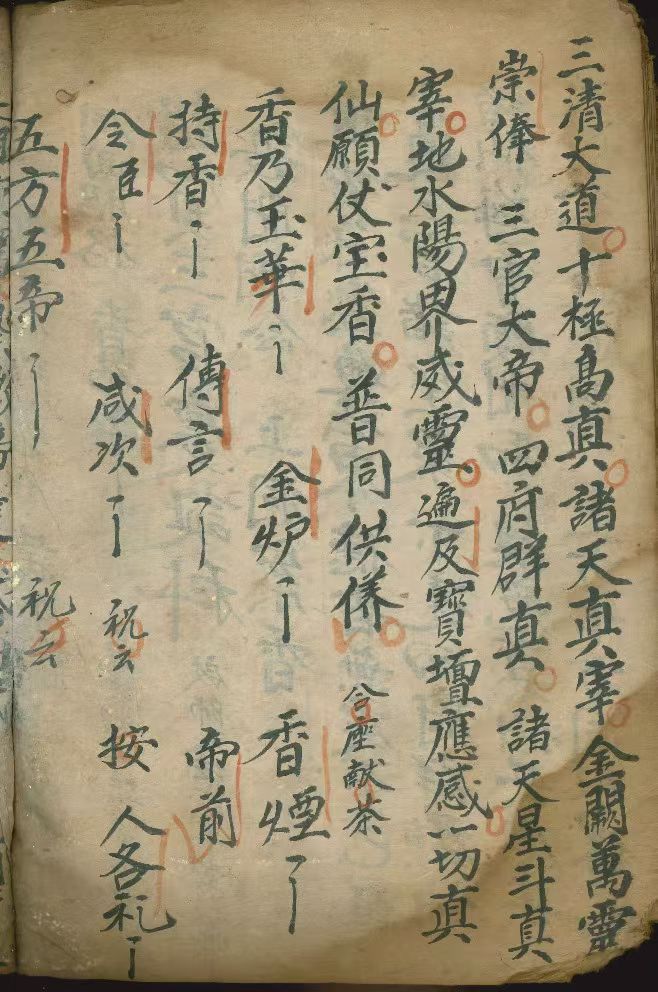 三清大道十極高真諸天真宰金闕萬靈
崇俸三官大帝四府群真諸天星斗真
宰地水陽界威靈遍及寶壇應感一切真
仙願仗宝香普同供侍 合座献茶
香乃玉華 金炉 香煙
持香 傳言 帝前
令臣 咸次 祝云 按 人各礼
五方五帝 祝云